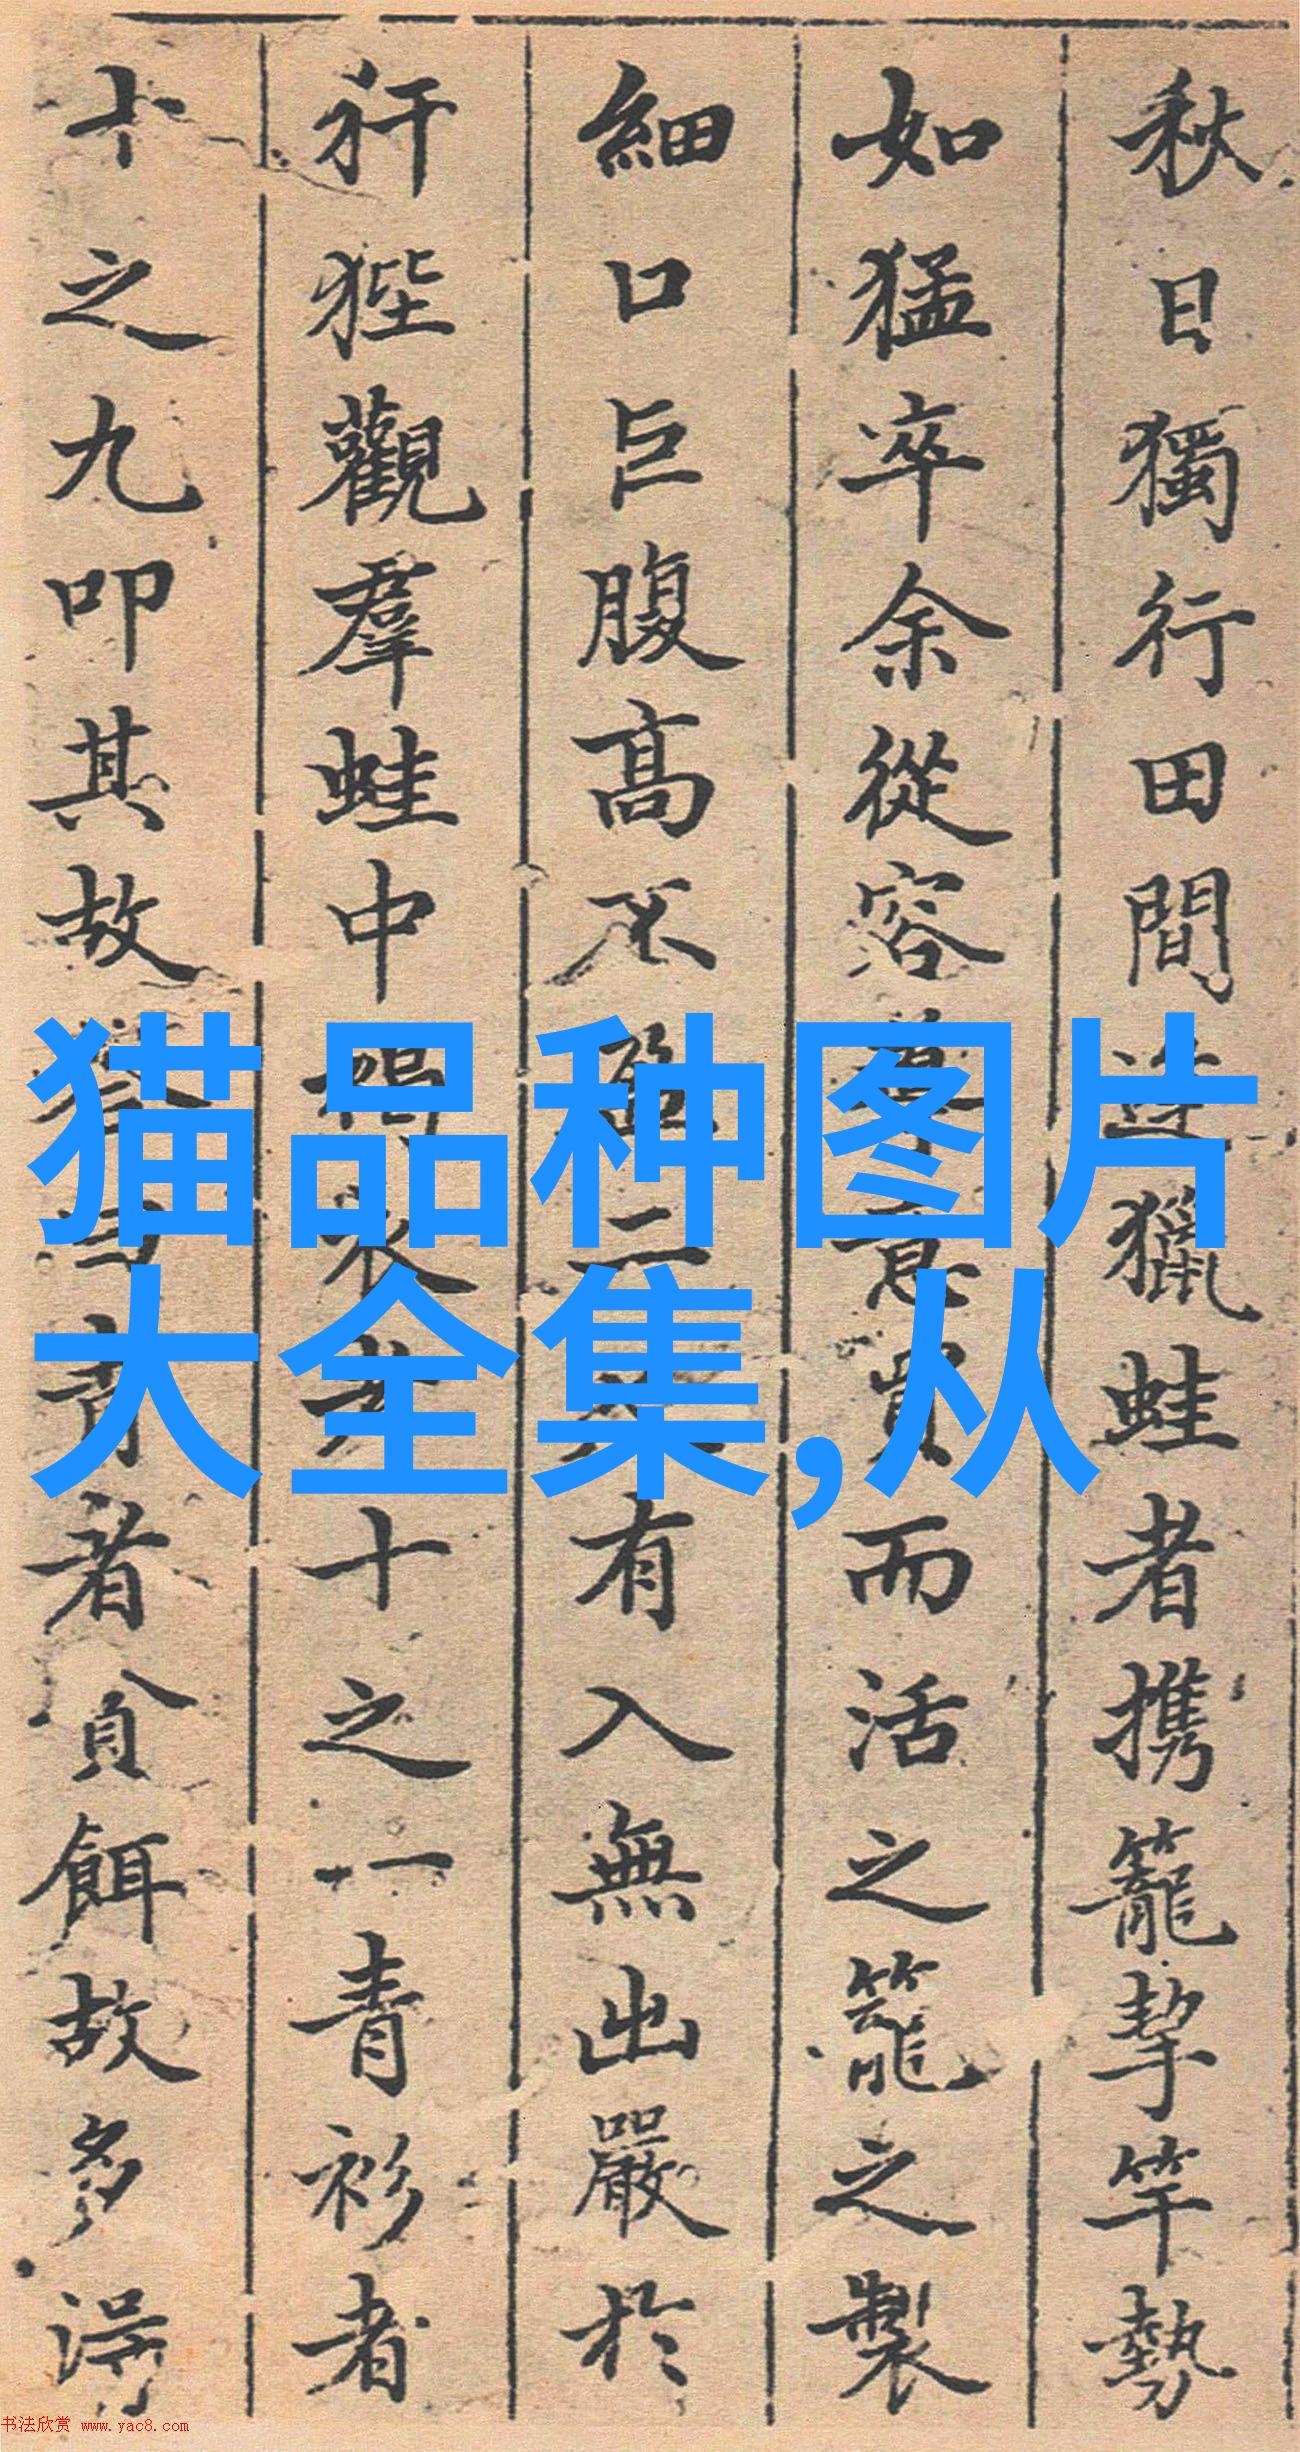 秋日獨行田間逢獵蛙者携籠挈竿勢
如猛卒余從容尋意買而活之籠之製
細口巨腹高不盈二尺有入無出嚴於
犴狴觀羣蛙中褐衣者十之一青衫者
十之九叩其故 青者貪餌故多得
猫品种图片
大全集,从
书法欣赏 www.yac8.com